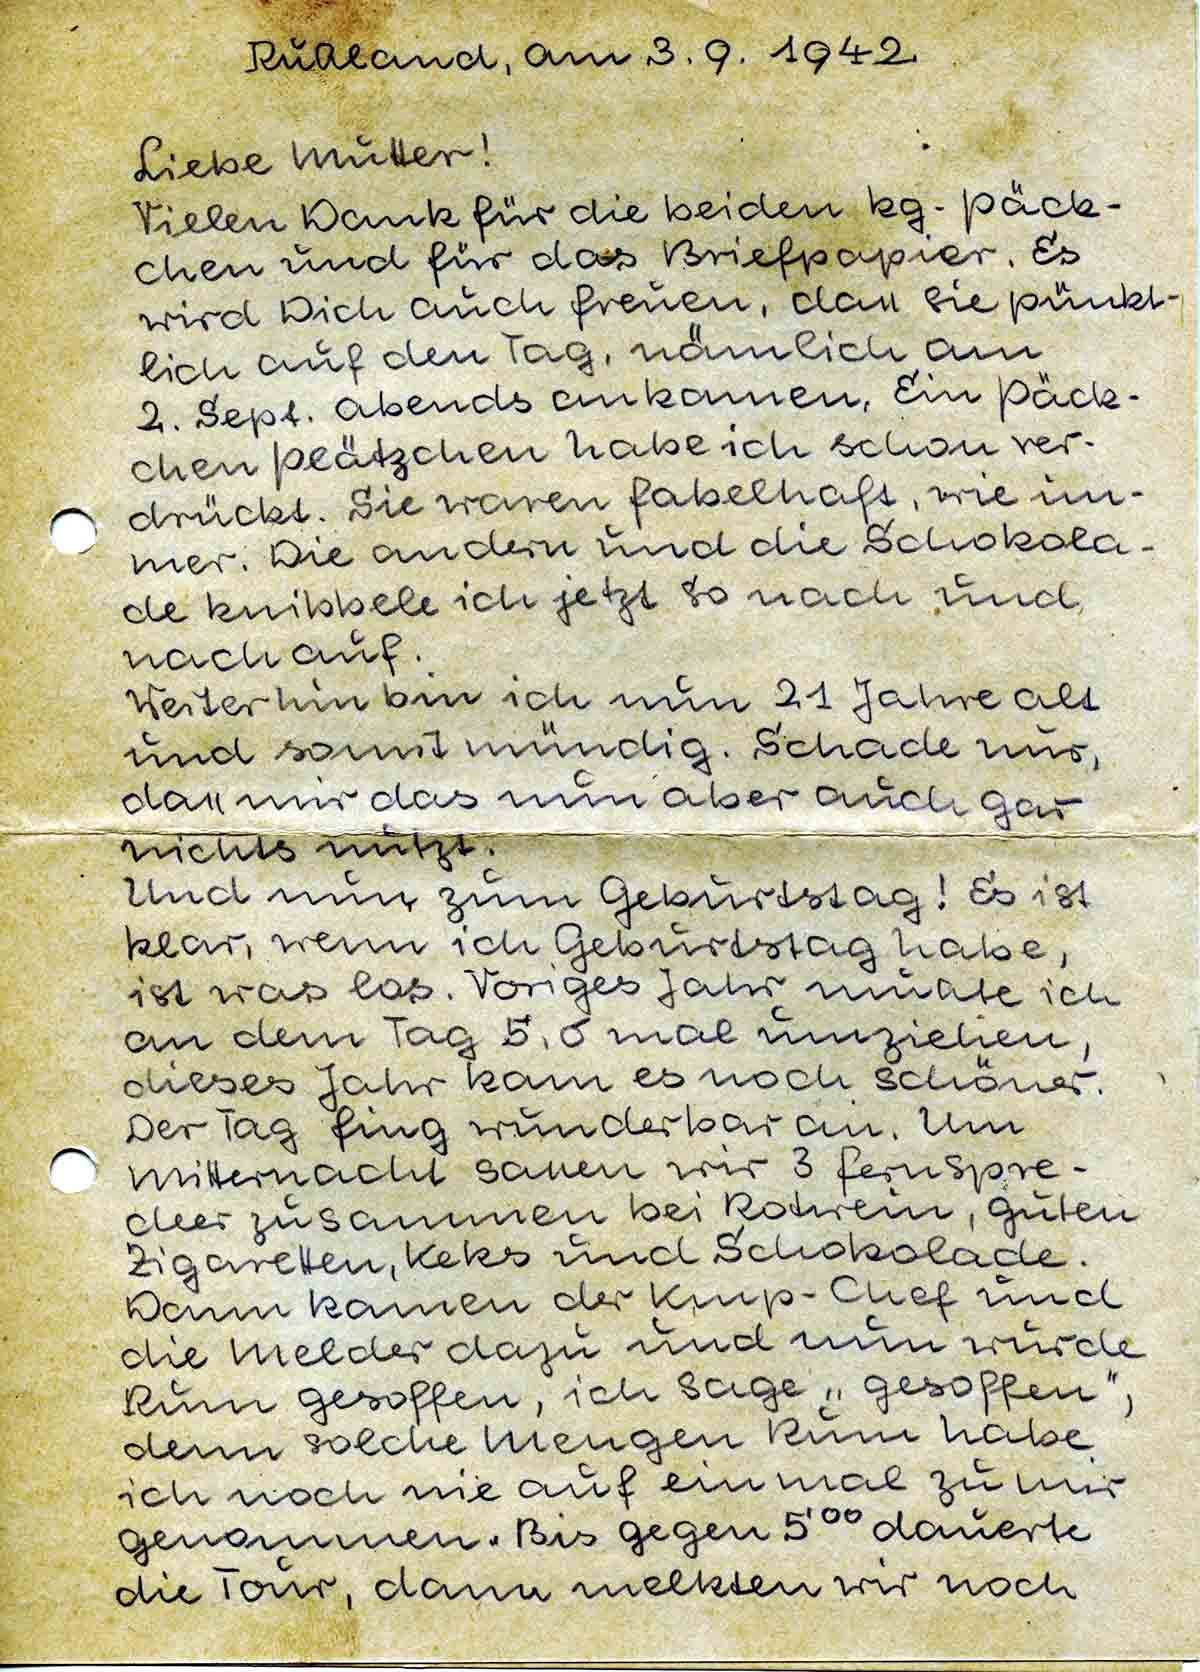 Rußland, am 3.9.1942.
Liebe Mutter!
Vielen Dank für die beiden kg-Päck-
chen und für das Briefpapier. Es
wird Dich auch freuen, daß sie pünkt-
lich auf den Tag, nämlich am
2. Sept. abends ankamen. Ein Päck-
chen Plätzchen habe ich schon ver-
drückt. Sie waren fabelhaft, wie im-
mer. Die andern und die Schokola-
de knibbele ich jetzt so nach und
nach auf.
Weiterhin bin ich nun 21 Jahre alt
und somit mündig. Schade nur,
daß mir das nun aber auch gar
nichts nützt.
Und nun zum Geburtstag! Es ist
klar, wenn ich Geburtstag habe,
ist was los. Voriges Jahr mußte ich
an dem Tag 5,6 mal umziehen,
dieses Jahr kam es noch schöner.
Der Tag fing wunderbar an. Um
Mitternacht saßen wir 3 Fernspre-
cher zusammen bei Rotwein, guten
Zigaretten, Keks und Schokolade.
Dann kamen der Kmp-Chef und
die Melder dazu und nun wurde
Rum gesoffen, ich sage „gesoffen",
denn solche Mengen Rum habe
ich noch nie auf einmal zu mir
genommen. Bis gegen 5⁰⁰ dauerte
die Tour, dann melkten wir noch